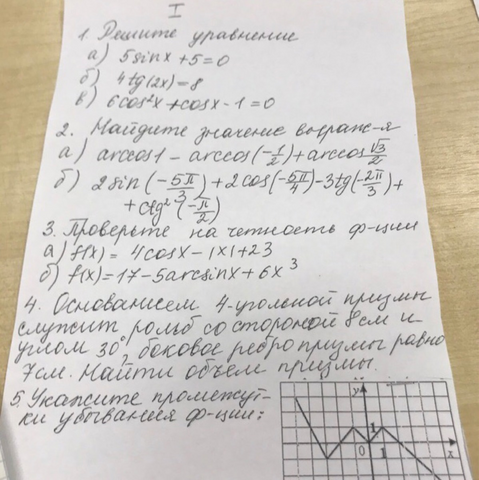 I
1. Решите уравнение
а) 5sinx+5=0
б) 4tg(2x)=8
в) 6cos²x+cosx-1=0
2. Найдите значение выраж-я
а) arccos1 - arccos(-1/2)+arccos √3/2
б) 2sin(-5π/3)+2cos(-5π/4)-3tg(-2π/3)+
+ctg²(-π/2)
3. Проверьте на четность ф-ции
а) f(x)= 4cosx-|x|+23
б) f(x)=17-5arcsinx+6x³
4. Основанием 4-угольной призмы
служит ромб со стороной 8см и
углом 30°, боковое ребро призмы равно
7см. Найти объем призмы.
5. Укажите промежут-
ки убывания ф-ции:
y
1
0 1 x